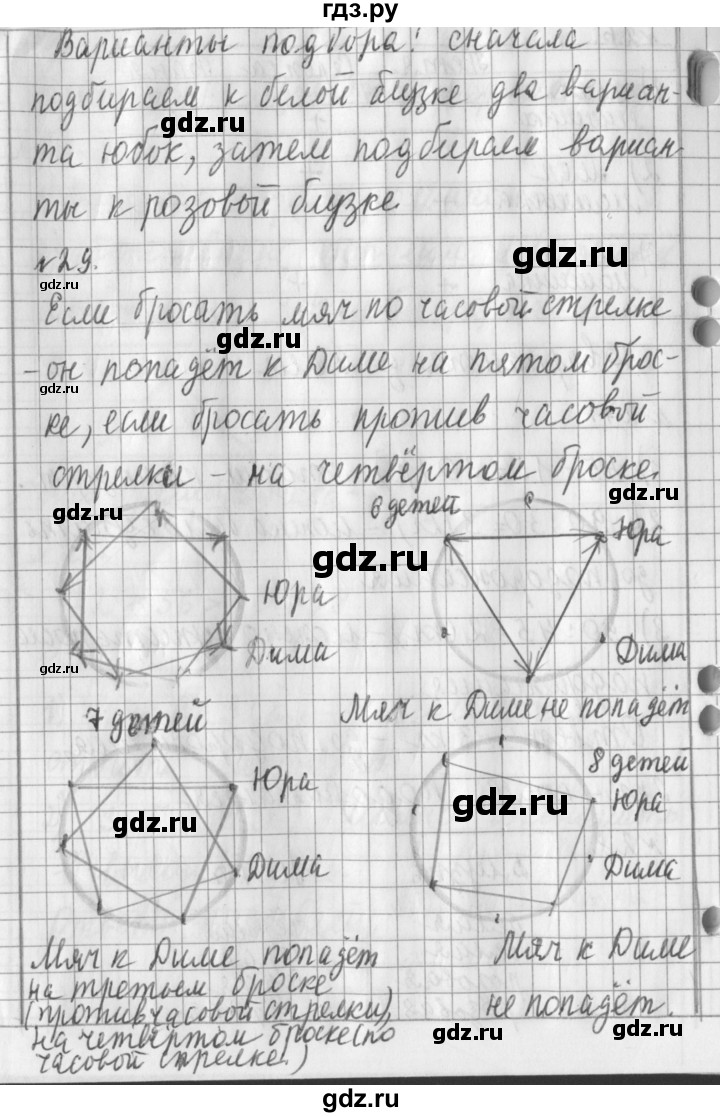 гдз.ру
Варианты подбора: сначала
подбираем к белой блузке два вариан-
gdz.ru
gdz.ru
та юбок, затем подбираем вариан
ты к розовой блузке
gdz.ru
gdz.ru
№29.
Если бросать мяч по часовой стрелке
gdz.ru
- он попадёт к Диме на пятом брос-
gdz.ru
ке, если бросать против часовой
стрелки – на четвёртом броске.
gdz.ru
gdz.ru
6 детей
Юра
gdz.ru
Юра
Дима
Дима
gdz.ru
7 детей
Мяч к Диме не попадёт
8 детей
Юра
Юра
gdz.ru
gdz.ru
Дима
Дима
Мяч к Диме попадёт
на третьем броске
(против часовой стрелки),
на четвёртом броске (по
часовой стрелке.)
Мяч к Диме
не попадёт.
gdz.ru
gdz.ru
gdz.ru